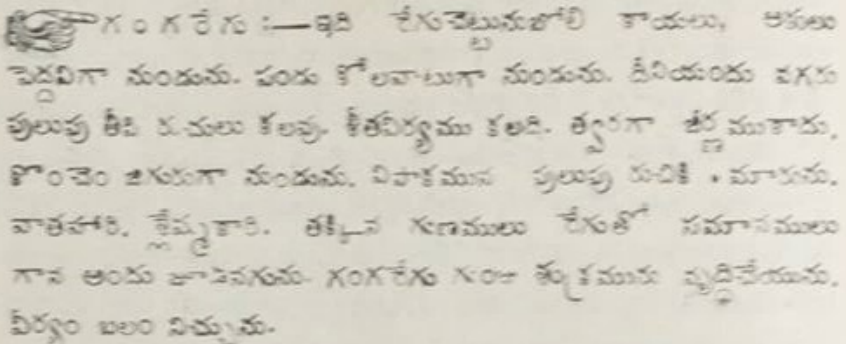 గంగరేగు :— ఇది రేగుచెట్టునుబోలి కాయలు, ఆకులు
పెద్దవిగా నుండును. పండు కోలవాటుగా నుండును. దీనియందు వగరు
పులుపు తీపి రుచులు కలవు. శీతవీర్యము కలది. త్వరగా జీర్ణముకాదు,
కొంచెం జిగురుగా నుండును. విపాకమున పులుపు రుచికి మారును.
వాతహారి. శ్లేష్మకారి. తక్కిన గుణములు రేగుతో సమానములు
గాన అందు జూడనగును. గంగరేగు గుంజు శుక్రమును వృద్ధిచేయును.
వీర్యం బలం నిచ్చును.